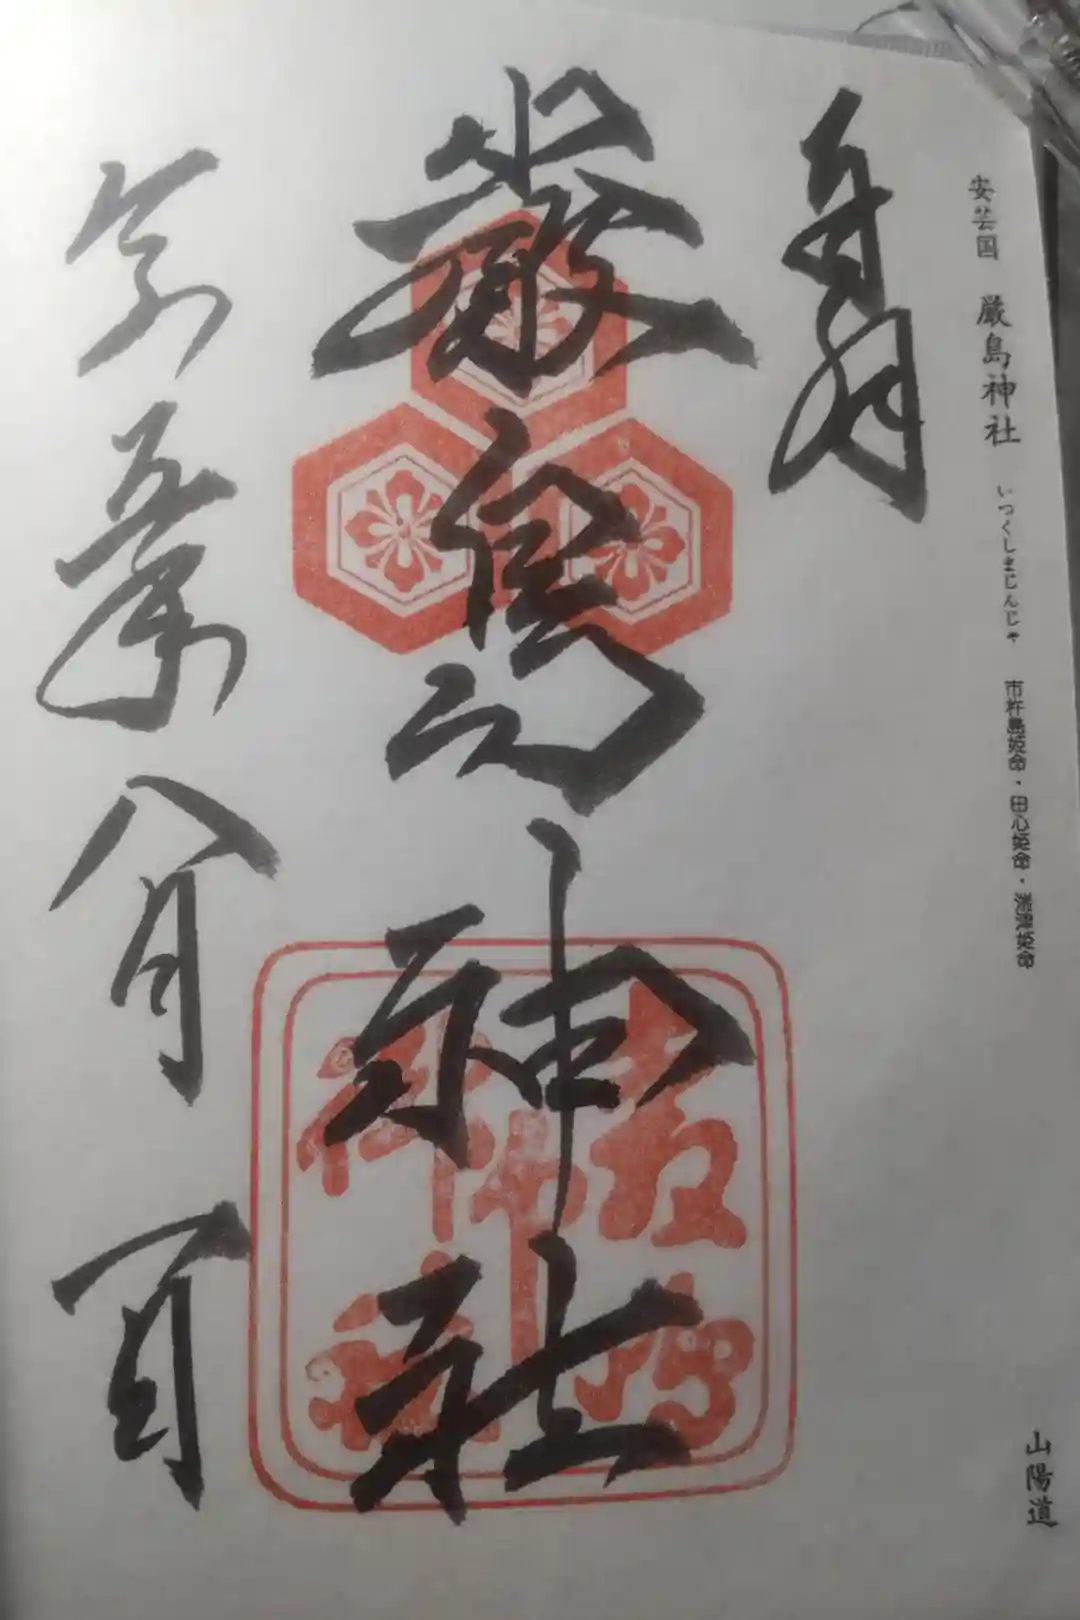 安芸国　厳島神社　いつくしまじんじゃ　市杵島姫命・田心姫命・湍津姫命
山陽道
嚴島神社
令和五年八月一日